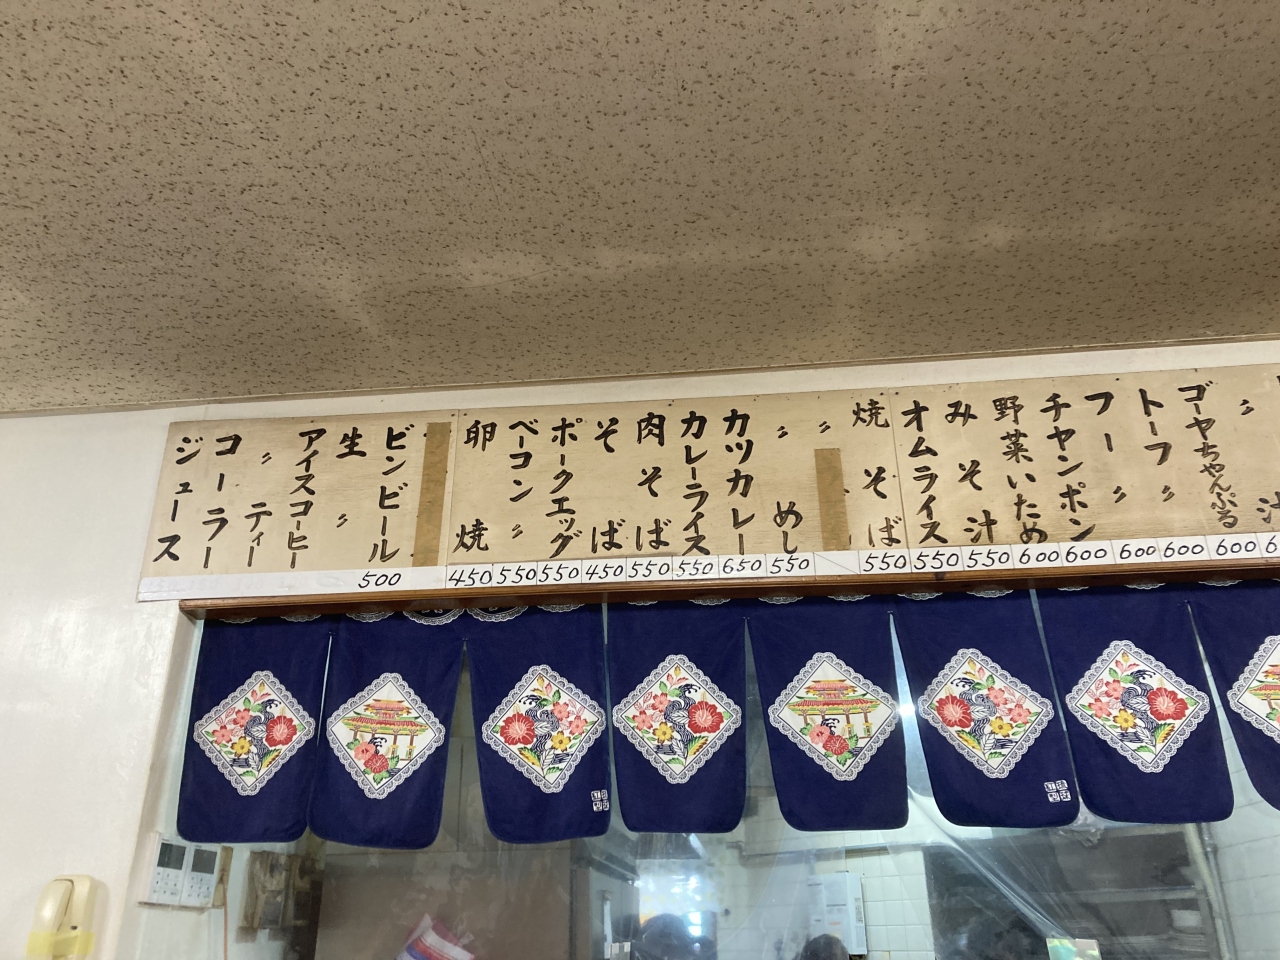 〃
ゴーヤちゃんぷる
トーフ〃
フー〃
チャンポン
野菜いため
みそ汁
オムライス
焼そば
〃
〃めし
カツカレー
カレーライス
肉そば
そば
ポークエッグ
ベーコン〃
卵焼
ビンビール
生〃
アイスコーヒー
〃ティー
コーラ
ジュース
500
450
550
550
450
550
550
650
550
550
550
550
600
600
600
600
600